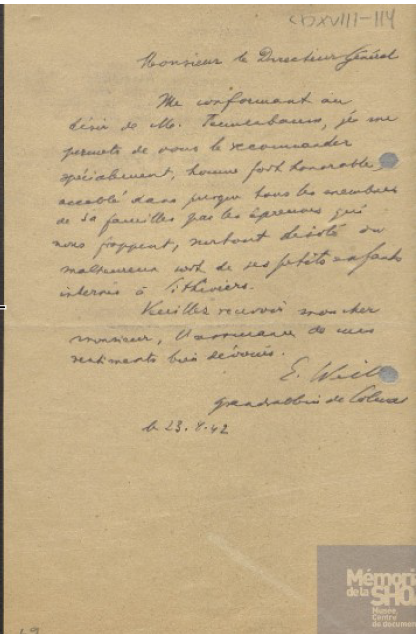 CDXVIII-114
Monsieur le Directeur Général
Me conformant au
désir de M. Tennenbaum, je me
permets de vous le recommander
spécialement, homme fort honorable,
accablé dans presque tous les membres
de sa familles par les épreuves qui
nous frappent, surtout désolé du
malheureux sort de ses petits enfants
internés à Pithiviers.
Veuillez recevoir mon cher
monsieur, l'assurance de mes
sentiments bien dévoués.
E. Weill
grand rabbin de Colmar
le 23.8.42
Mémorial
de la SHOAH
Musée,
Centre
de documen